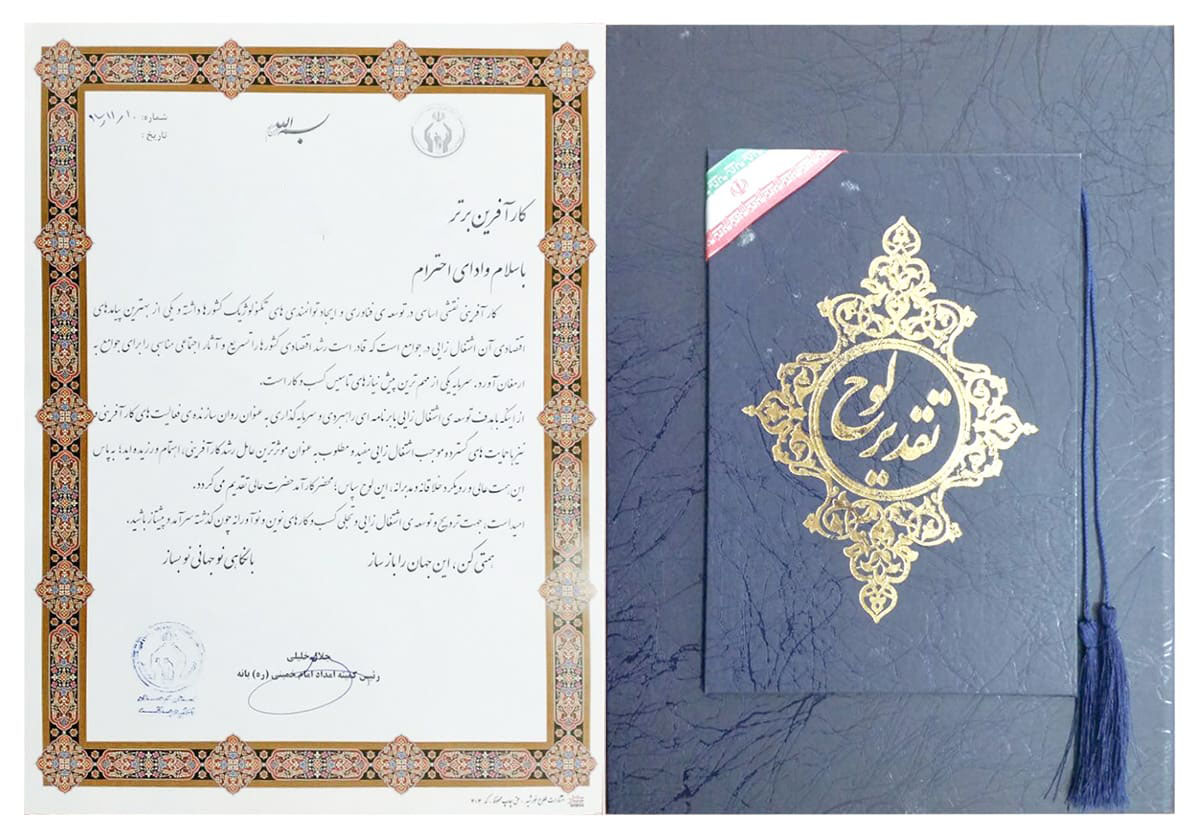 شماره: ۹۷/۱۱/۱۰
تاریخ:
بسم الله
کارآفرین برتر
باسلام و ادای احترام
کارآفرینی نقشی اساسی در توسعه ی فناوری و ایجاد توانمندی های تکنولوژیک کشورها داشته و یکی از بهترین پیامدهای
اقتصادی آن اشتغال زایی در جوامع است که قادر است رشد اقتصادی کشورها را تسریع و آثار اجتماعی مناسبی را برای جوامع به
ارمغان آورد، سرمایه یکی از مهم ترین پیش نیازهای تاسیس کسب و کار است.
از اینکه با هدف توسعه ی اشتغال زایی با برنامه ای راهبردی و سرمایه گذاری به عنوان روان سازنده ی فعالیت های کارآفرینی و
نیز با حمایت های گسترده موجب اشتغال زایی مفید و مطلوب به عنوان موثرترین عامل رشد کارآفرینی، اهتمام ورزیده اید؛ به پاس
این همت عالی و رویکرد خلاقانه و مدبرانه، این لوح سپاس؛ محضر کارآمد حضرت عالی تقدیم می گردد.
امید است، جهت ترویج و توسعه ی اشتغال زایی و تجلی کسب و کارهای نوین و نوآورانه چون گذشته سرآمد و پیشتاز باشید.
همتی کن، این جهان را باز ساز با نگاهی نو جهانی نو بساز
جلال خلیلی
رئیس کمیته امداد امام خمینی (ره) بانه
لوح
تقدیر